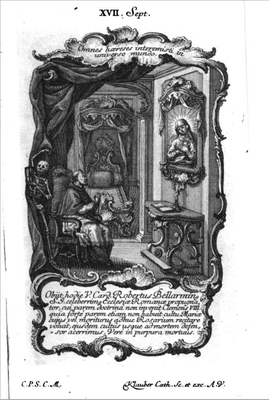 XVII. Sept.
Omnes hæreses interemisti in
universo mundo.
Obijt hodie V. Card. Robertus Bellarmin,
S. I. celeberrim, Ecclesiæ Romanæ propugna
tor, cui parem doctrina non invenit Clemens VIII.
quia forte parem etiam non habuit cultu Mariæ
cujus vel moriturus adhuc Rosarium recitare
voluit, ejusdem cultus usque ad mortem defen,
sor acerrimus. Vere in purpura mortalis.
C.P.S.C.M.
Klauber Cath. Sc. et exc. A.V.